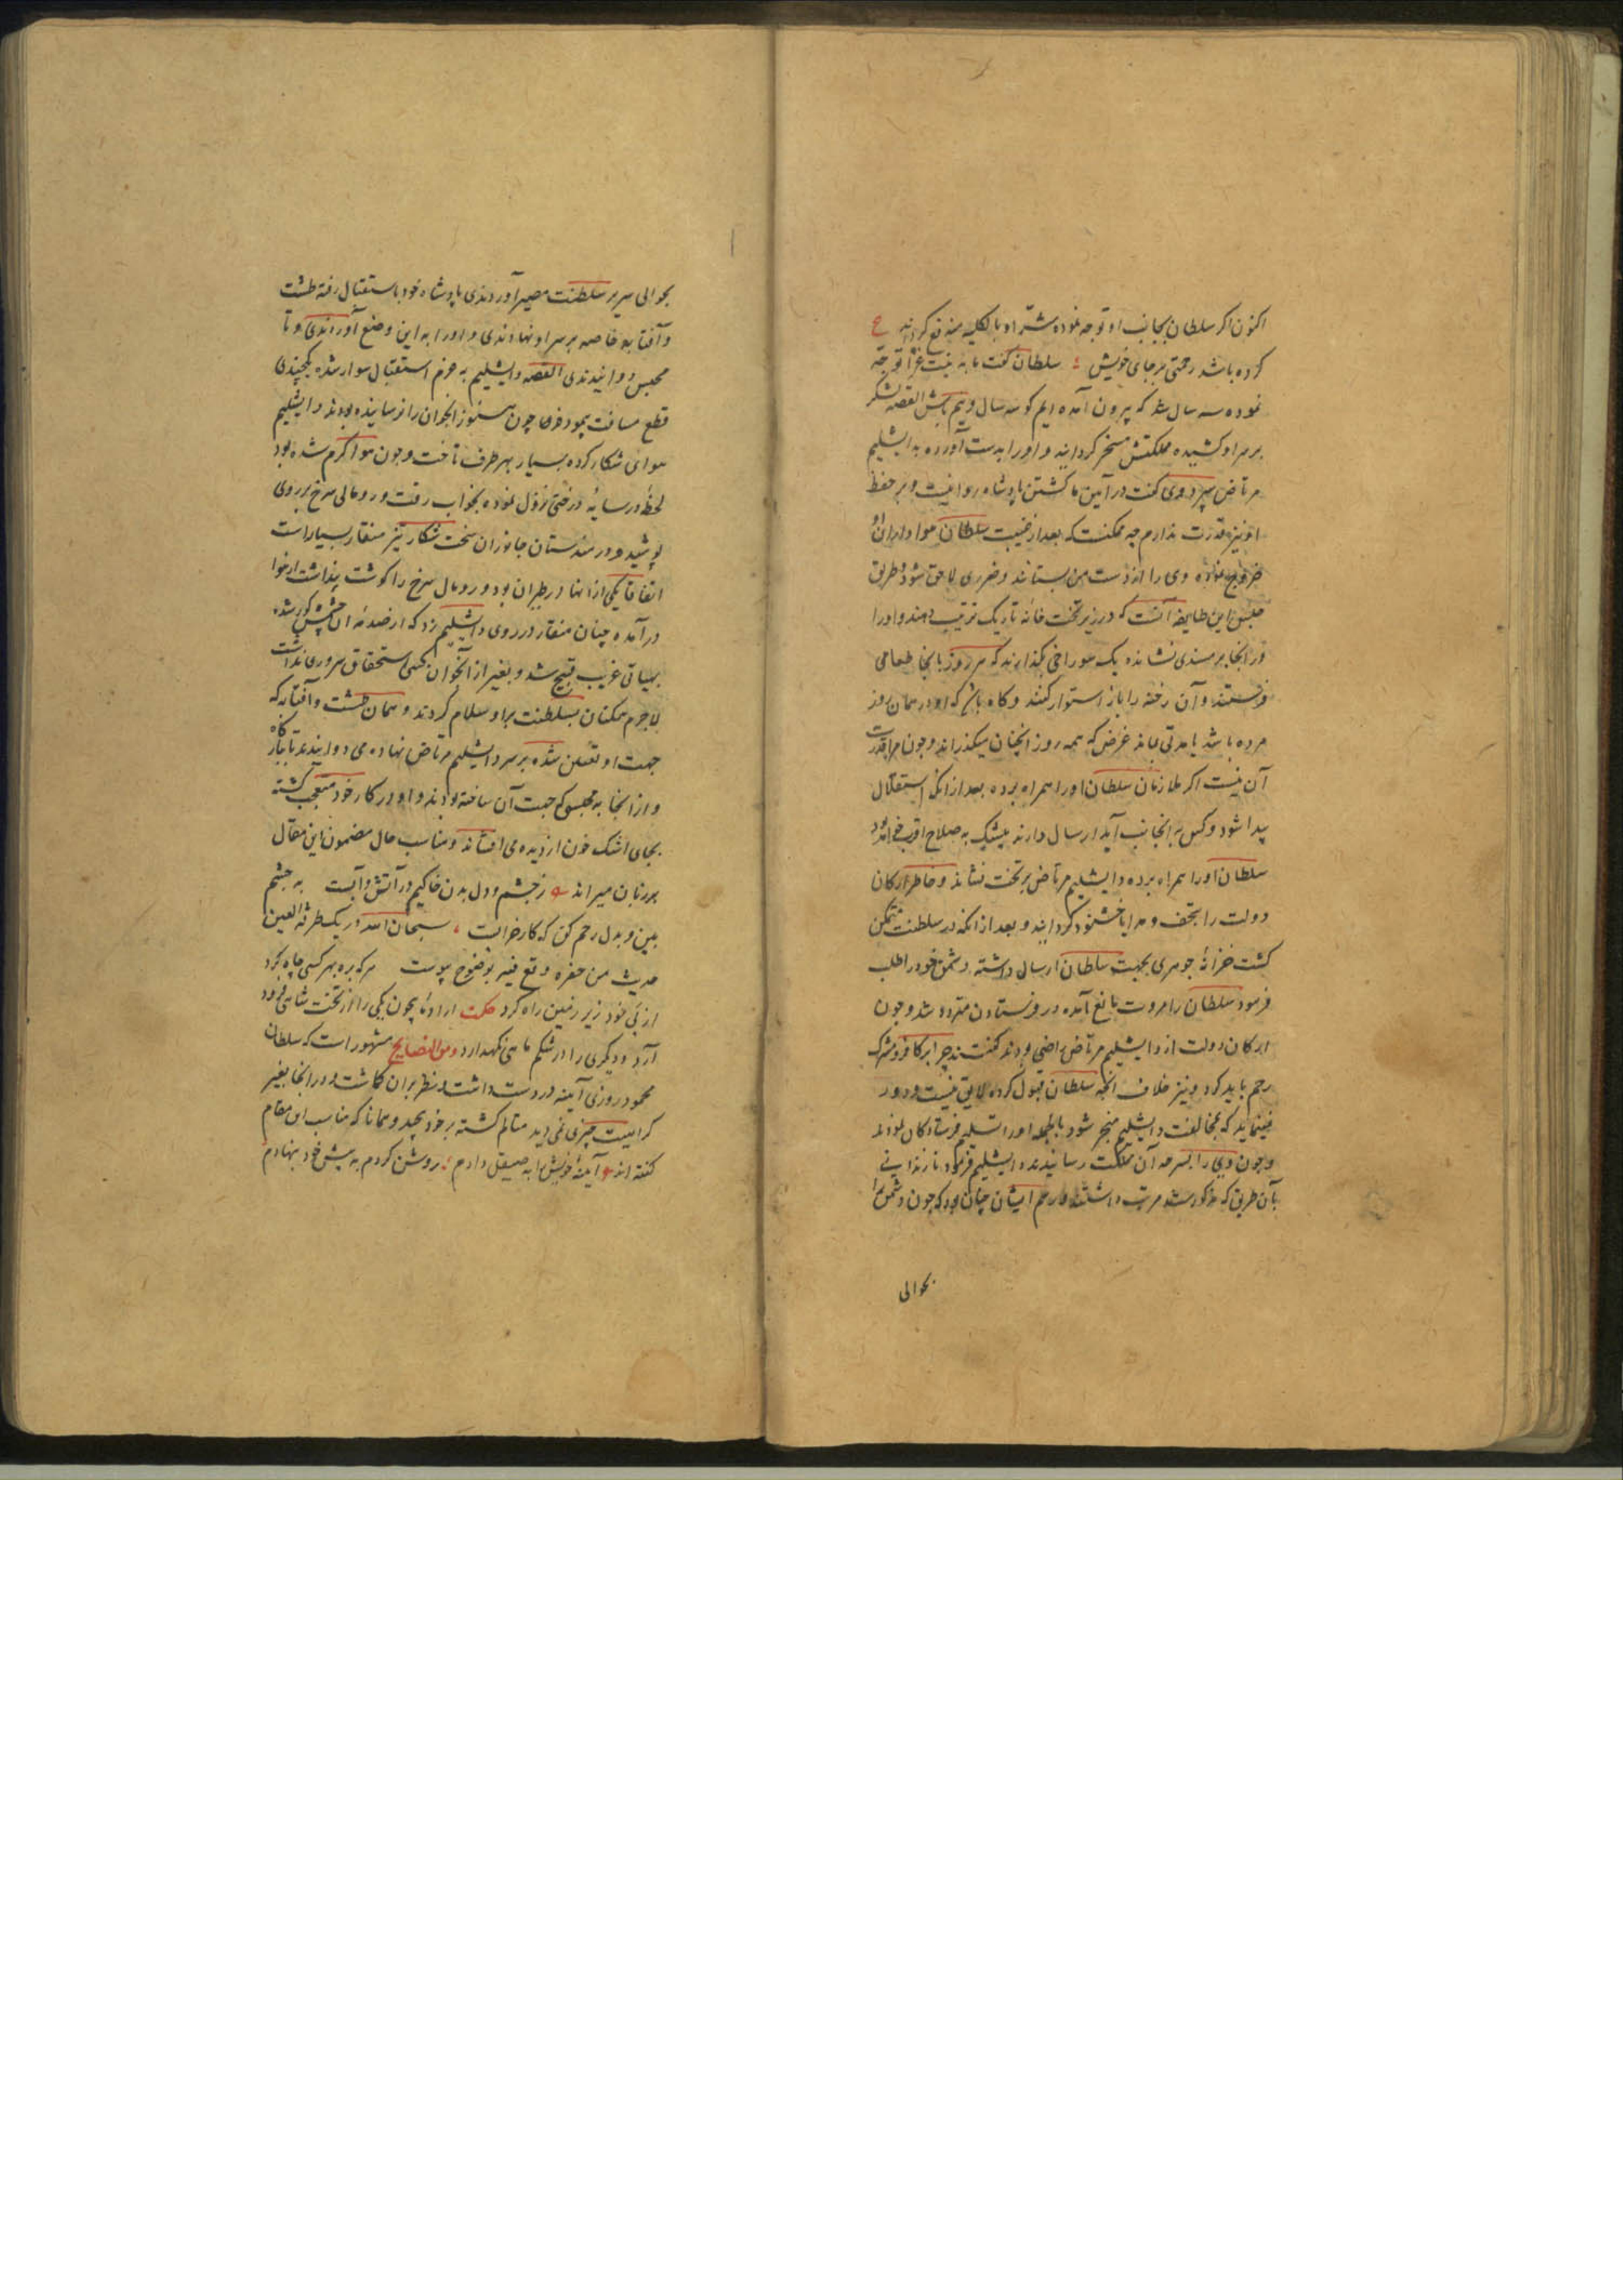 اکنون اگر سلطان بجانب او توجه نموده شر او بالکلیه مندفع گرداند ع
کرده باشد رحمتی بر جای خویش سلطان گفت ما به نیت غزا توجه
نموده سه سال شد که بیرون آمده ایم کو سه سال و نیم باش القصه لشکر
بر سر او کشیده مملکتش مسخر گردانید و او را بدست آورده به دابشلیم
مرتاض سپرد وی گفت در آیین ما کشتن پادشاه روا نیست و بر حفظ
او نیز قدرت ندارم چه ممکنست که بعد از غیبت سلطان هواداران او
خروج نموده وی را از دست من بستانند و ضرری لاحق شود و طریق
حبس این طایفه آنست که در زیر تخت خانه تاریک ترتیب دهند و او را
در انجا بر مسندی نشانده یک سوراخی بگذارند که هر روز بانجا طعامی
فرستند و آن رخنه را باز استوار کنند و گاه باشد که او در همان روز
مرده باشد یا مدتی بماند غرض که همه روز انچنان میگذراند و چون مرا قدرت
آن نیست اگر ملازمان سلطان او را همراه برده بعد از انکه استقلال
پیدا شود و کس به انجانب آید ارسال دارند بیشک به صلاح اقرب خواهد بود
سلطان او را همراه برده و دابشلیم مرتاض بر تخت نشاند و خاطر ارکان
دولت را بتحف و هدایا خشنود گردانید و بعد از انکه در سلطنت متمکن
گشت خزانهٔ جوهری بجهت سلطان ارسال داشته دشمن خود را طلب
فرمود سلطان را مروت مانع آمده در فرستادن متردد شد و چون
ارکان دولت از دابشلیم مرتاض راضی بودند گفتند چرا بر کافر و مشرک
رحم باید کرد و نیز خلاف انچه سلطان قبول کرده لایق نیست و دور
مینماید که بمخالفت دابشلیم منجر شود بالجمله او را تسلیم فرستادگان نمودند
و چون وی را بسرحد آن مملکت رسانیدند دابشلیم فرمود تا زندانی
بآن طریق که مذکور شد مرتب داشتند و رسم ایشان چنان بود که چون دشمن را
بحوالی
بحوالی سریر سلطنت مصیر آوردندی پادشاه خود باستقبال رفته طشت
و آفتابه خاصه بر سر او نهادندی و او را به این وضع آوردندی و تا
محبس دوانیدندی القصه دابشلیم به عزم استقبال سوار شده یکچندی
قطع مسافت پیمود فرما چون هنوز انجوان را نرسانیده بودند دابشلیم
هوای شکار کرده بسیار بهر طرف تاخت و چون هوا گرم شده بود
لحظهٔ در سایهٔ درختی نزول نموده بخواب رفت و رومالی سرخ بر روی
پوشید و در هندستان جانوران سخت شکار تیز منقار بسیار است
اتفاقا یکی از انها در طیران بود و رومال سرخ را گوشت پنداشت از هوا
در آمده چنان منقار در روی دابشلیم زد که از صدمهٔ آن چشمش کور شده
بهیاتی غریب قبیح شد و بغیر از آنجوان کسی استحقاق سروری نداشت
لاجرم همگنان بسلطنت بر او سلام کردند و همان طشت و آفتابه که
جهت او تعین شده بر سر دابشلیم مرتاض نهاده می دوانیدند تا بارگاه
و از انجا به محبسی که جهت آن ساخته بودند و او در کار خود متعجب گشته
بجای اشک خون از دیده می افشاند و مناسب حال مضمون این مقال
بر زبان میراند ز چشم و دل بدن خاکیم در آتش و آبست به چشم
ببین و بدل رحم کن که کار خرابست سبحان الله در یک طرفة العین
حدیث من حفره وقع فیه بوضوح پیوست هر که بره بهر کسی چاه کرد
از پی خود زیر زمین راه کرد حکمت ارادتا چون یکی را از تخت شاهی فرود
آرد و دیگری را در شکم ماهی نگهدارد ومن النصایح مشهور است که سلطان
محمود روزی آیینه در دست داشت و نظر بران گماشت و در انجا بغیر
کراهیت چیزی نمی دید متالم گشته بر خود پیچید و همانا که مناسب این مقام
گفته اند آیینهٔ خویش را به صیقل دادم روشن کردم به پیش خود بنهادم